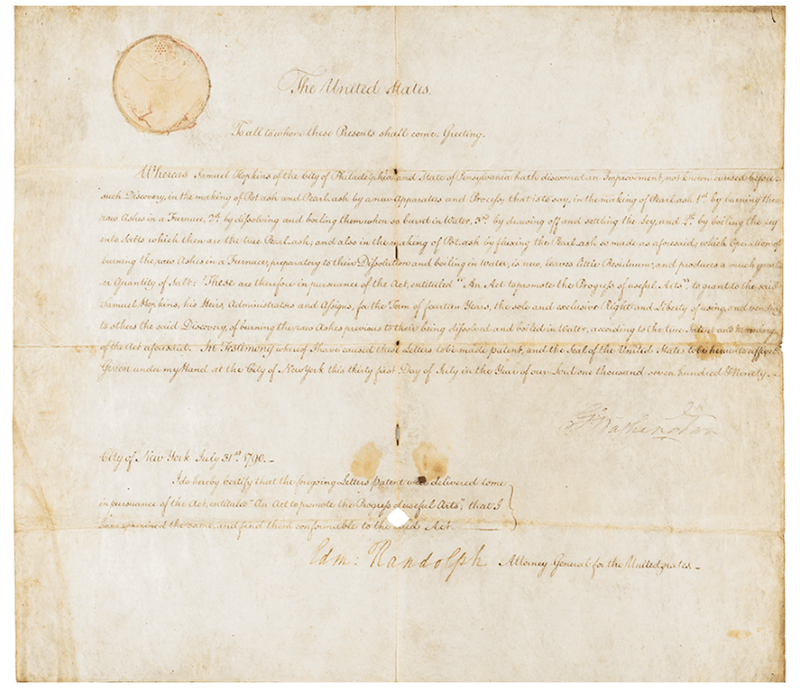 The United States.
To all to whom these Presents shall come, Greeting.
Whereas Samuel Hopkins of the City of Philadelphia and State of Pensylvania hath discovered an Improvement, not known or used before
such Discovery, in the making of Pot ash and Pearl ash by a new Apparatus and Process; that is to say, in the making of Pearl ash 1st. by burning the
raw Ashes in a Furnace, 2d. by dissolving and boiling them when so burnt in Water, 3rd. by drawing off and settling the Ley, and 4th. by boiling the Ley
into Salts which then are the true Pearl ash; and also in the making of Pot ash by fluxing the Pearl ash so made as aforesaid; which Operation of
burning the raw Ashes in a Furnace, preparatory to their Dissolution and boiling in Water, is new, leaves little Residuum; and produces a much great
er Quantity of Salt: These are therefore in pursuance of the Act, entituled "An Act to promote the Progress of useful Arts", to grant to the said
Samuel Hopkins, his Heirs, Administrators and Assigns, for the Term of fourteen Years, the sole and exclusive Right and Liberty of using and vending
to others the said Discovery, of burning the raw Ashes previous to their being dissolved and boiled in Water, according to the true Intent and meaning
of the Act aforesaid. In Testimony whereof I have caused these Letters to be made patent, and the Seal of the United States to be hereunto affixed
Given under my Hand at the City of New York this thirty first Day of July in the Year of our Lord one thousand seven hundred & Ninety.
G Washington
City of New York July 31st. 1790.
I do hereby Certify that the foregoing Letters patent were delivered to me
in pursuance of the Act, entituled "An Act to promote the Progress of useful Arts"; that I
have examined the same, and find them conformable to the said Act.
Edm: Randolph Attorney General for the United States.